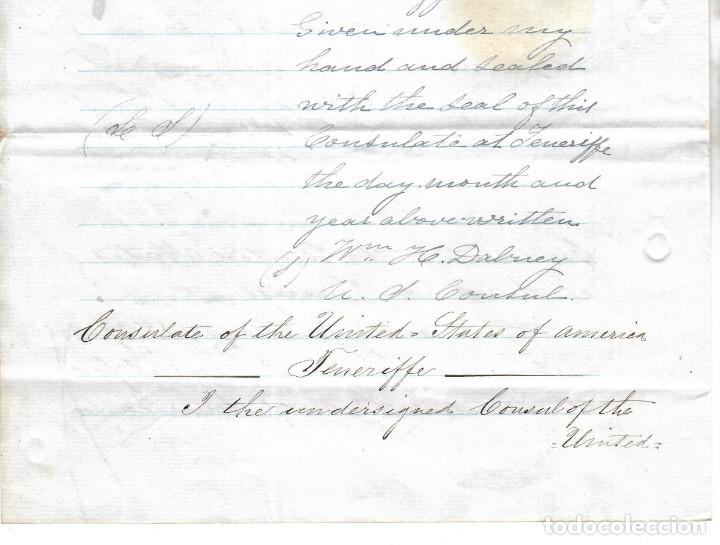 Given under my
hand and sealed
with the seal of this
(L S) Consulate at Teneriffe
the day month and
year above written
(S) Wm. H. Dabney
U. S. Consul.
Consulate of the United = States of America
Teneriffe
I the undersigned Consul of the
= United =
todocoleccion.net